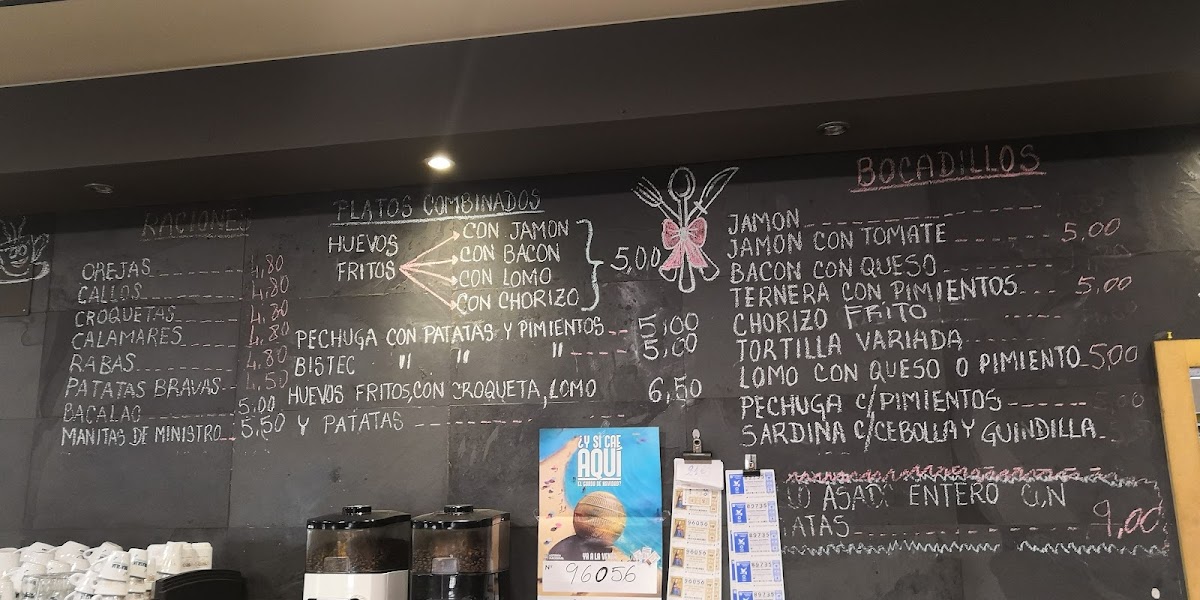 RACIONES
OREJAS 4,80
CALLOS 4,80
CROQUETAS 4,80
CALAMARES 4,80
RABAS 4,80
PATATAS BRAVAS 4,50
BACALAO 5,00
MANITAS DE MINISTRO 5,50
PLATOS COMBINADOS
HUEVOS FRITOS
CON JAMON
CON BACON
CON LOMO
CON CHORIZO
5,00
PECHUGA CON PATATAS Y PIMIENTOS 5,00
BISTEC " " " 5,00
HUEVOS FRITOS, CON CROQUETA, LOMO 6,50
Y PATATAS
BOCADILLOS
JAMON
JAMON CON TOMATE 5,00
BACON CON QUESO
TERNERA CON PIMIENTOS 5,00
CHORIZO FRITO
TORTILLA VARIADA
LOMO CON QUESO O PIMIENTO 5,00
PECHUGA C/PIMIENTOS 5,00
SARDINA C/CEBOLLA Y GUINDILLA
ASADO ENTERO CON
ATAS 9,00
¿Y SI CAE
AQUÍ
EL GORDO DE NAVIDAD?
YA A LA VENTA
Nº 96056
96056
89735
89735
89735
89735